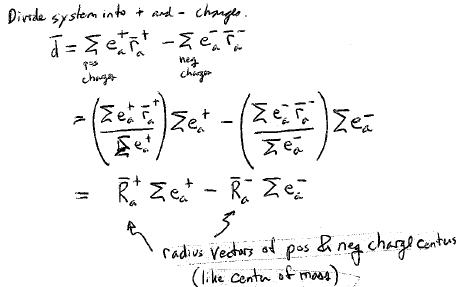 Divide system into + and - charges.
d̄ = Σ e_a^+ r̄_a^+ - Σ e_a^- r̄_a^-
pos charges neg charges
= (Σ e_a^+ r̄_a^+ / Σ e_a^+) Σ e_a^+ - (Σ e_a^- r̄_a^- / Σ e_a^-) Σ e_a^-
= R̄_a^+ Σ e_a^+ - R̄_a^- Σ e_a^-
radius vectors of pos & neg charge centers
(like center of mass)